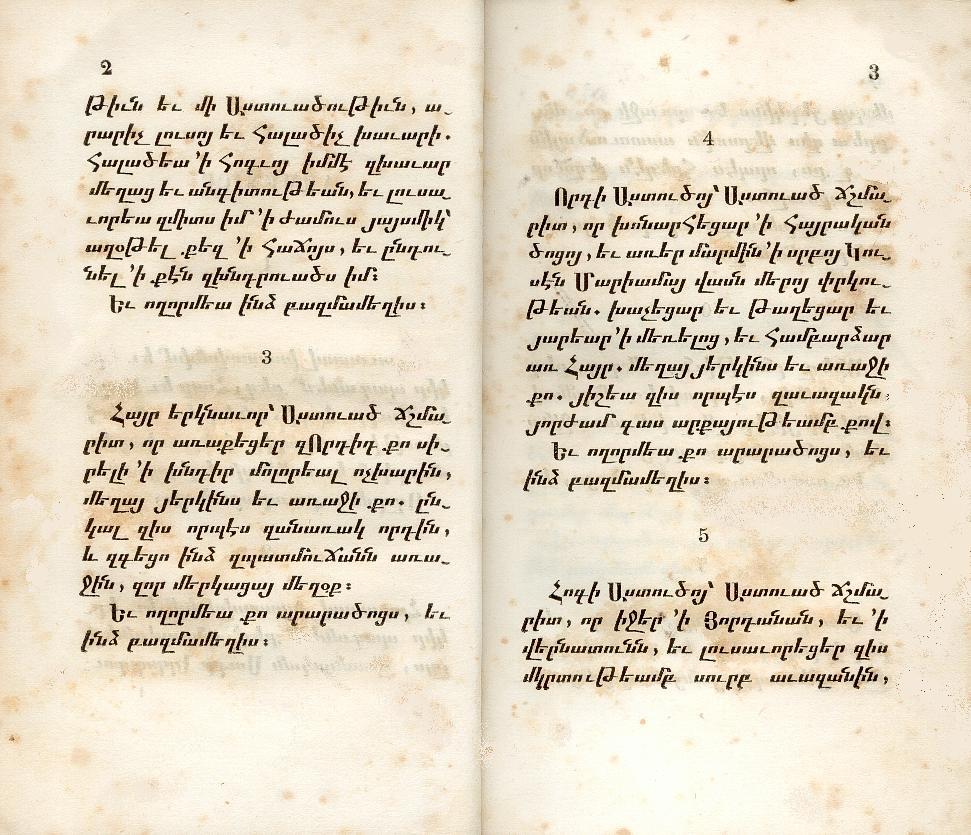 2
թիւն եւ մի Աստուածութիւն, ա-
րարիչ լուսոյ եւ հալածիչ խաւարի.
հալածեա՛ ՚ի հոգւոյ իմմէ զխաւար
մեղաց եւ անգիտութեան, եւ լուսա-
ւորեա զմիտս իմ ՚ի ժամուս յայսմիկ՝
աղօթել քեզ ՚ի հաճոյս, եւ ընդու-
նել ՚ի քէն զխնդրուածս իմ։
Եւ ողորմեա ինձ բազմամեղիս։
3
Հայր երկնաւոր՝ Աստուած ճշմա-
րիտ, որ առաքեցեր զՈրդիդ քո սի-
րելի ՚ի խնդիր մոլորեալ ոչխարին,
մեղայ յերկինս եւ առաջի քո. ըն-
կալ զիս որպէս զանառակ որդին,
և զգեցո ինձ զպատմուճանն առա-
ջին, զոր մերկացայ մեղօք։
Եւ ողորմեա քո արարածոցս, եւ
ինձ բազմամեղիս։
3
4
Որդի Աստուծոյ՝ Աստուած ճշմա-
րիտ, որ խոնարհեցար ՚ի Հայրական
ծոցոյ, եւ առեր մարմին ՚ի սրբոյ Կու-
սէն Մարիամայ վասն մերոյ փրկու-
թեան. խաչեցար եւ թաղեցար եւ
յարեար ՚ի մեռելոց, եւ համբարձար
առ Հայր. մեղայ յերկինս եւ առաջի
քո. յիշեա զիս որպէս զաւազակն,
յորժամ գաս արքայութեամբ քով։
Եւ ողորմեա քո արարածոցս, եւ
ինձ բազմամեղիս։
5
Հոգի Աստուծոյ՝ Աստուած ճշմա-
րիտ, որ իջեր ՚ի Յորդանան, եւ ՚ի
վերնատունն, եւ լուսաւորեցեր զիս
մկրտութեամբ սուրբ աւազանին,